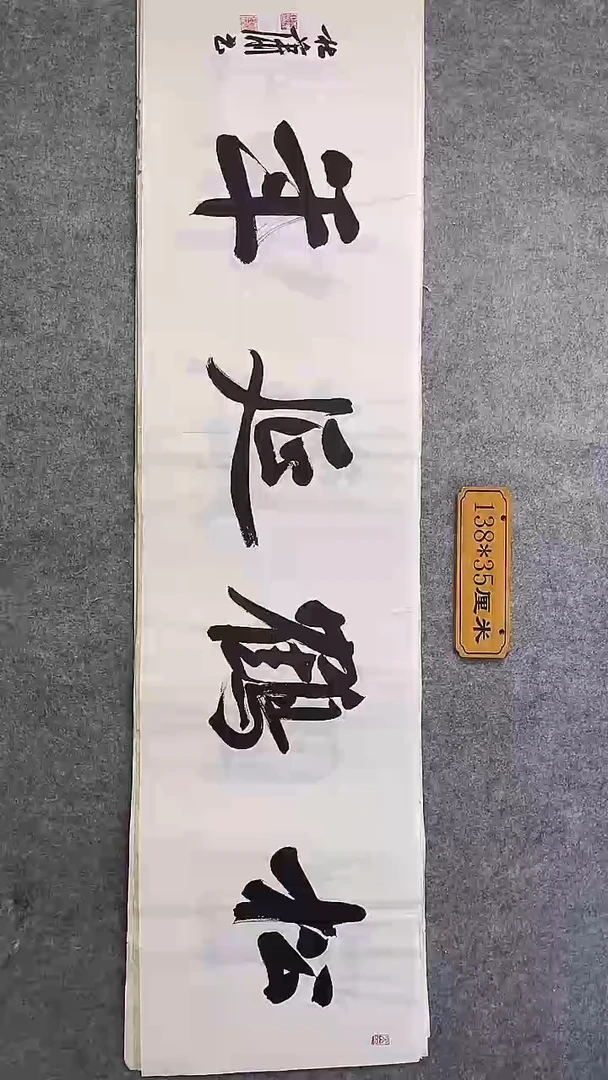 松鶴延年
138*35厘米